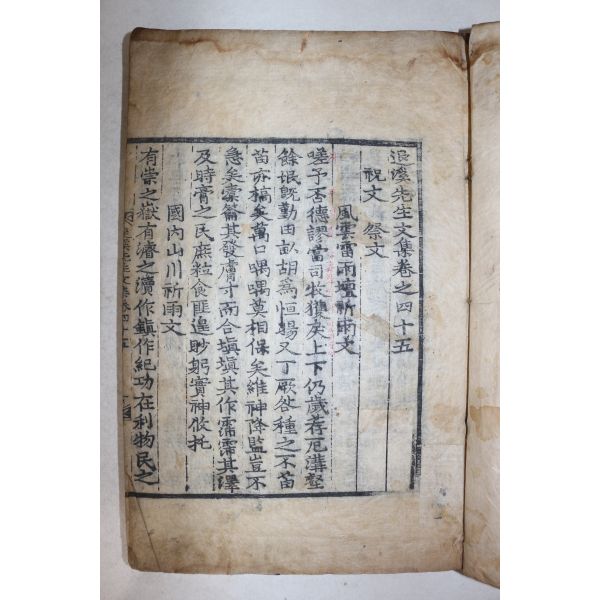 退溪先生文集卷之四十五
祝文 祭文
風雲雷雨壇祈雨文
嗟予否德謬當司牧獲戾上下仍歲荐厄溝壑
餘氓旣勤田畝胡爲恒暘又丁厥咎種之不苗
苗亦槁矣萬口喁喁莫相保矣維神降監豈不
急矣橐籥其發膚寸而合塡塡其作霈霈其澤
及時膏之民庶粒食匪遑眇躬實神攸托
國內山川祈雨文
有崇之嶽有濬之瀆作鎭作紀功在利物民之
退溪先生文集卷四十五